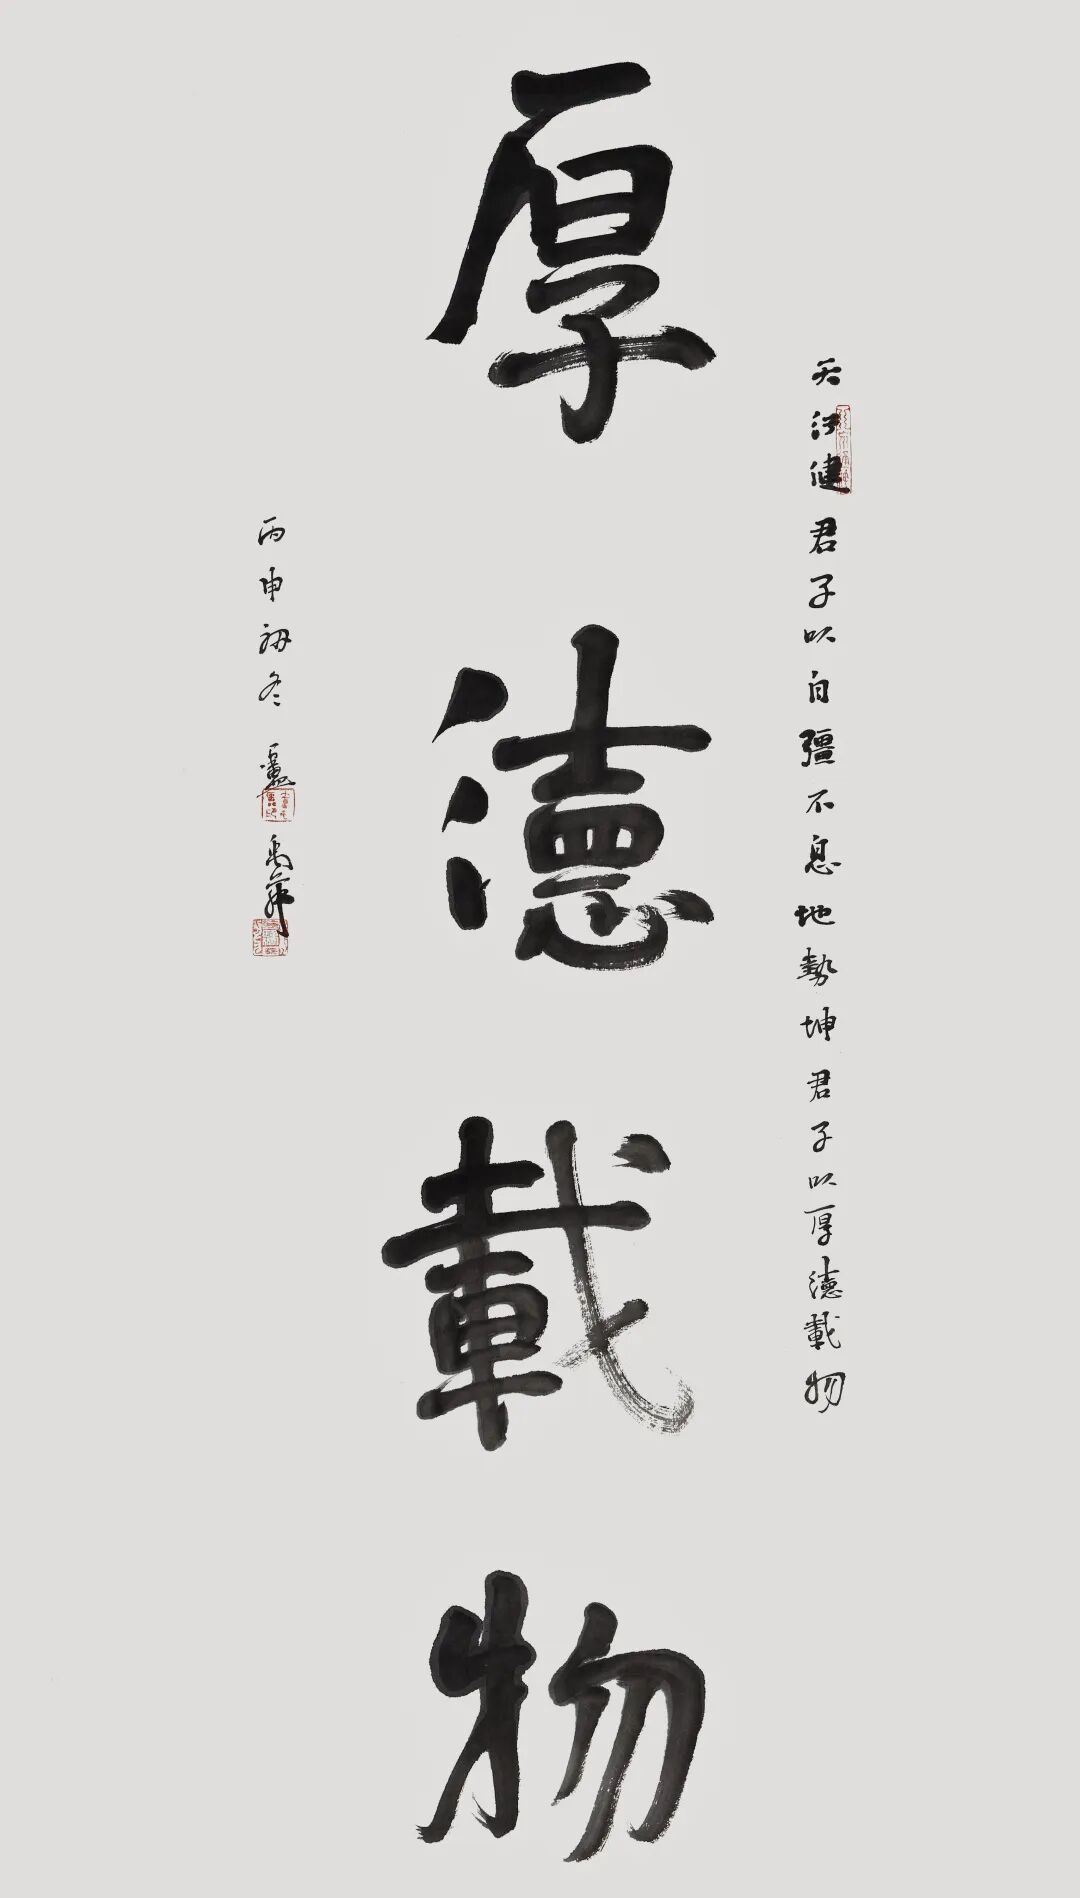 天行健君子以自彊不息地勢坤君子以厚德載物
厚德載物
丙申初冬盧禹舜